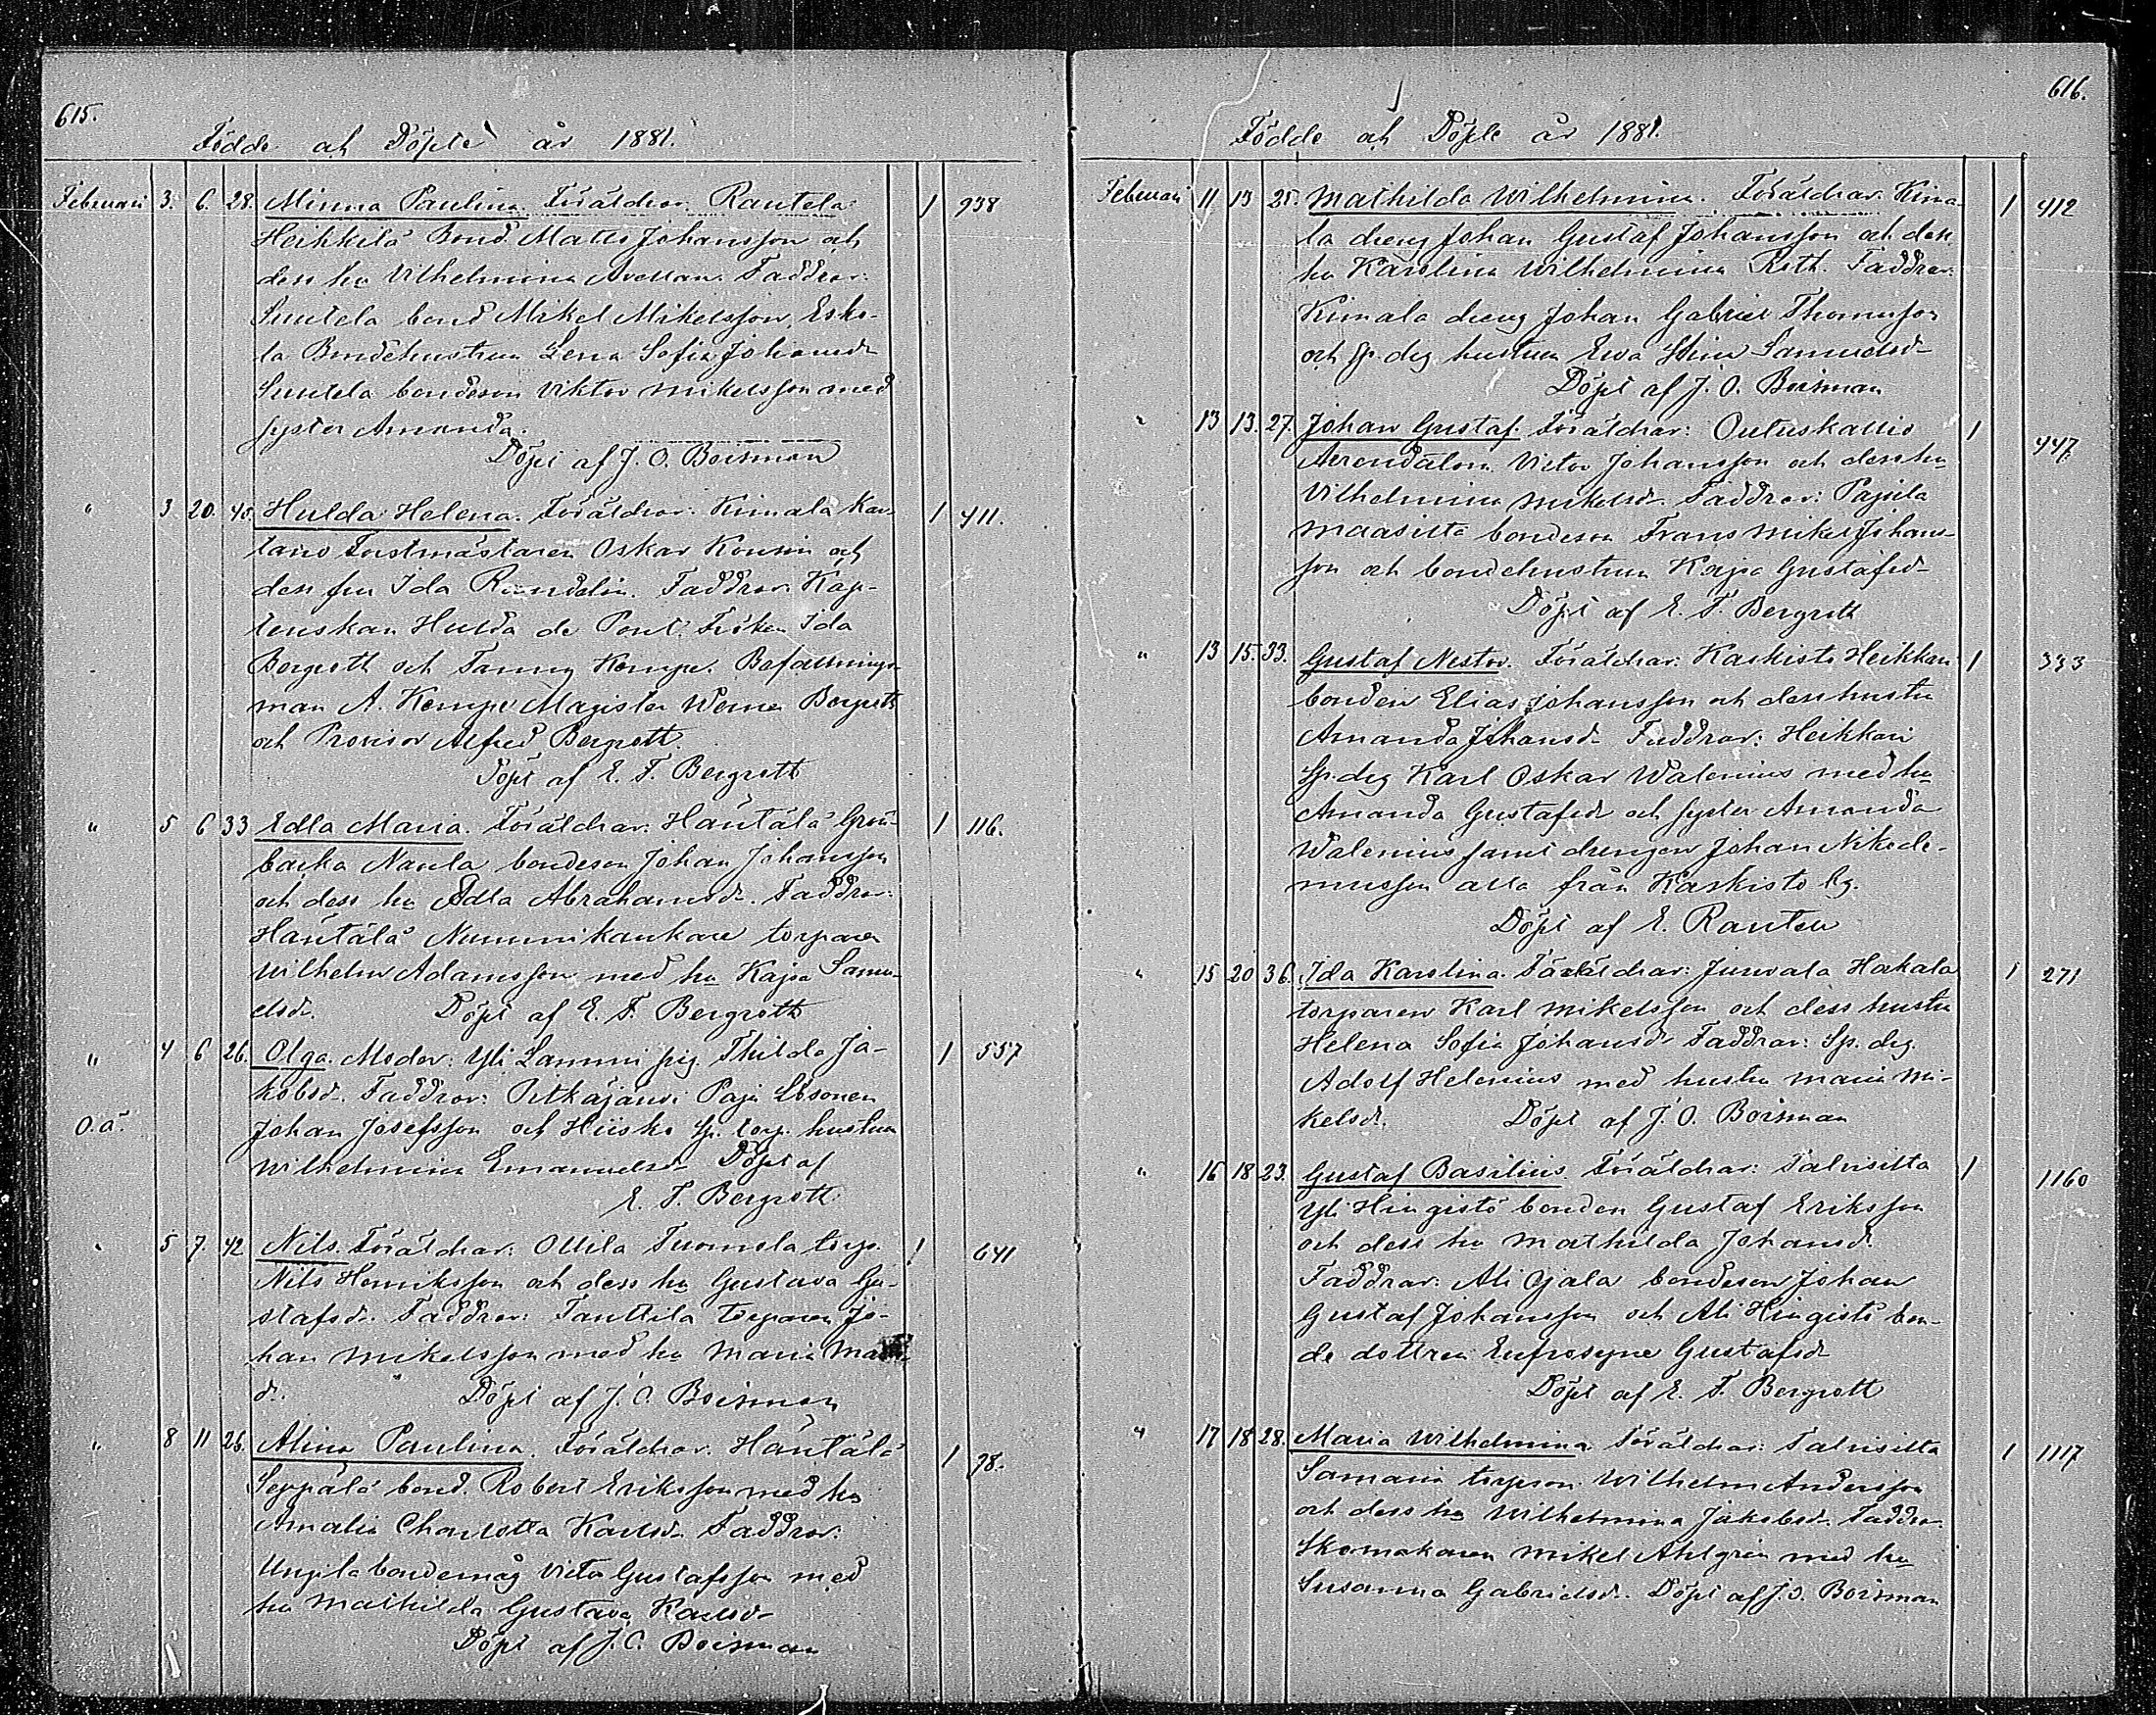 615.
Födde och Döpte år 1881.
Februari 3. 6. 28. Minna Paulina. Föräldrar: Rautela 1 938
Heikkilä Bond. Matts Johansson och
dess hu Vilhelmina Avellan. Faddrar:
Suutela bond Mikel Mikelsson, Esko-
la Bondehustrun Lena Sofia Johansdr
Suutela bondeson Viktor Mikelsson med
syster Amanda.
Döpt af J. O. Boisman
" 3 20. 40. Hulda Helena. Föräldrar: Kimala Kar- 1 411.
tano Forstmästaren Oskar Konsin och
dess fru Ida Rundelin. Faddrar: Kap-
tenskan Hulda de Pont. Fröken Ida
Bergroth och Fanny Kempe. Befallnings-
man A. Kempe Magister Werner Bergroth
och Provisor Alfred Bergrott.
Döpt af E. F. Bergroth
" 5 6 33 Edla Maria. Föräldrar: Häntälä Grön- 1 116.
backa Naula bondeson Johan Johansson
och dess hu Adla Abrahamsdr. Faddrar:
Häntälä Nummikankare torparen
Wilhelm Adamsson med hu Kajsa Samu-
elsdr. Döpt af E. F. Bergroth
" 4 6 26. Olga. Moder: Yli Lammi pig. Thilda Ja- 1 557
kobsd. Faddrar: Pitkäjärvi Paja
O.ä. Johan Josefsson och Hiisko Sp. torp. hustrun
Wilhelmina Emanuelsdr Döpt af
E. F. Bergrott
" 5 7. 42 Nils. Föräldrar: Ollila Tuomola torp. 1 641
Nils Henriksson och dess hu Gustava Gu-
stafsdr. Faddrar: Tanttila torparen Jo-
han Mikelsson med hu Maria
d. Döpt af J. O. Boisman
" 8 11 26. Alina Paulina. Föräldrar: Häntälä 1 98.
Seppälä bond. Robert Eriksson med hu
Amalia Charlotta Karlsdr Faddrar:
Uusila bondemåg Victor Gustafsson med
hu Mathilda Gustava Karlsdr
Döpt af J. O. Boisman
616.
Födde och Döpte år 1881.
Februari 11 13 25. Mathilda Wilhelmina. Föräldrar: Kima- 1 412
la dreng Johan Gustaf Johansson och dess
hu Karolina Wilhelmina Roth. Faddrar:
Kimala dreng Johan Gabriel Thomasson
och Sp drg hustrun Ewa Stina Samuelsd
Döpt af J. O. Boisman
" 13 13. 27. Johan Gustaf. Föräldrar: Outuskallio 1 447
Arrendatorn Victor Johansson och dess hu
Vilhelmina Mikelsd. Faddrar: Pajula
Maasilta bondeson Frans Mikel Johans-
son och bondehustrun Kajsa Gustafsd
Döpt af E. F. Bergroth
" 13 15. 33. Gustaf Nestor. Föräldrar: Karkisto Heikkari 1 333
bonden Elias Johansson och dess hustru
Amanda Johansd Faddrar: Heikkari
Sp. drg Karl Oskar Walenius med hu
Amanda Gustafsd och syster Amanda
Walenius samt drengen Johan Nikode-
musson alla från Karkisto by.
Döpt af E. Rauten
" 15 20 36. Ida Karolina. Föräldrar: Jurvala Hakala 1 271
torparen Karl Mikelsson och dess hustru
Helena Sofia Johansdr Faddrar: Sp. drg.
Adolf Helenius med hustru Maria Mi-
kelsdr. Döpt af J. O. Boisman
" 16 18 23. Gustaf Basilius. Föräldrar: Talvisilta 1 1160
Yli Hingistö bonden Gustaf Eriksson
och dess hu Mathilda Johansd.
Faddrar: Ali Ojala bondeson Johan
Gustaf Johansson och Ali Hingistö bon-
de dottren Eufrosyne Gustafsd
Döpt af E. F. Bergrott
" 17 18 28. Maria Wilhelmina Föräldrar: Talvisilta 1 1117
Samaria torpson Wilhelm Andersson
och dess hu Wilhelmina Jakobsd. Faddra.
Skomakaren Mikel Ahlgren med hu
Susanna Gabrielsd. Döpt af J. O. Boisman